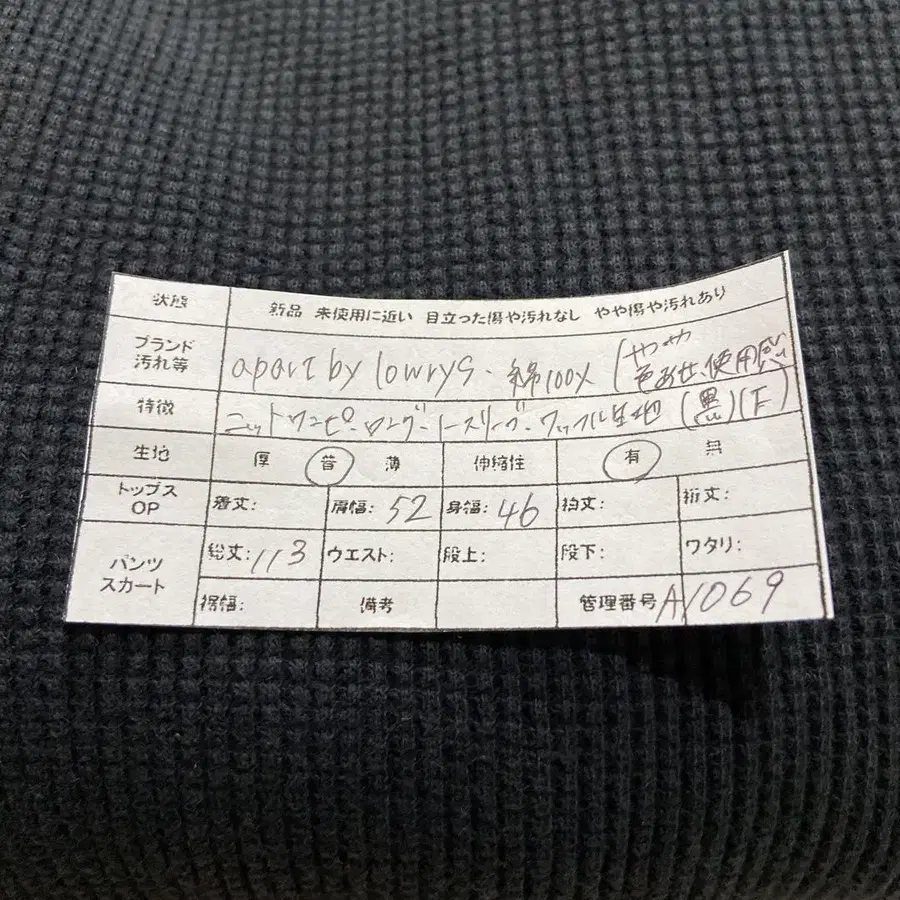 状態 新品 未使用に近い 目立った傷や汚れなし やや傷や汚れあり
ブランド 汚れ等 apart by lowrys. 綿100% (やや色あせ、使用感
特徴 ニットワンピ. ロング. ノースリーブ. ワッフル生地 (黒)(F)
生地 厚 普 薄 伸縮性 有 無
トップス OP 着丈: 肩幅: 52 身幅: 46 裄丈:
パンツ スカート 総丈: 113 ウエスト: 股上: 股下: ワタリ:
裾幅: 備考 管理番号 AY069